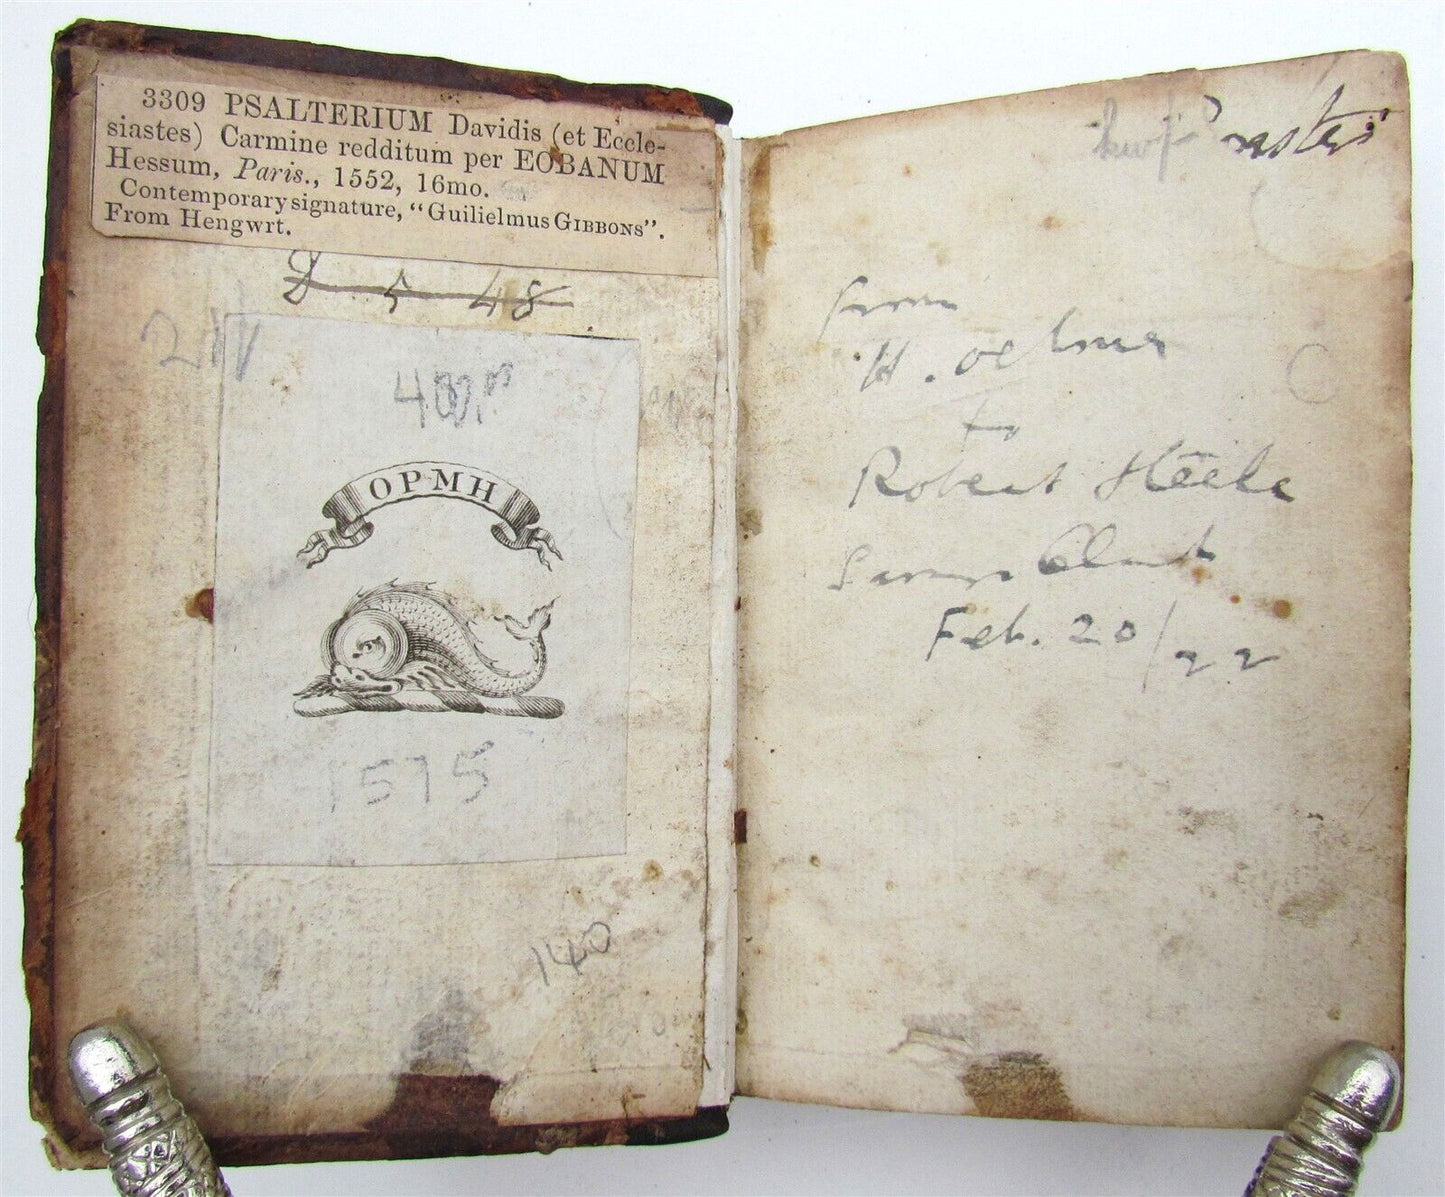 3309 PSALTERIUM Davidis (et Eccle-
siastes) Carmine redditum per EOBANUM
Hessum, Paris., 1552, 16mo.
Contemporary signature, "Guilielmus GIBBONS".
From Hengwrt.
5 48
OPMH
1575
140
from
H. Oelsner
to
Robert Steele
Feb. 20/22